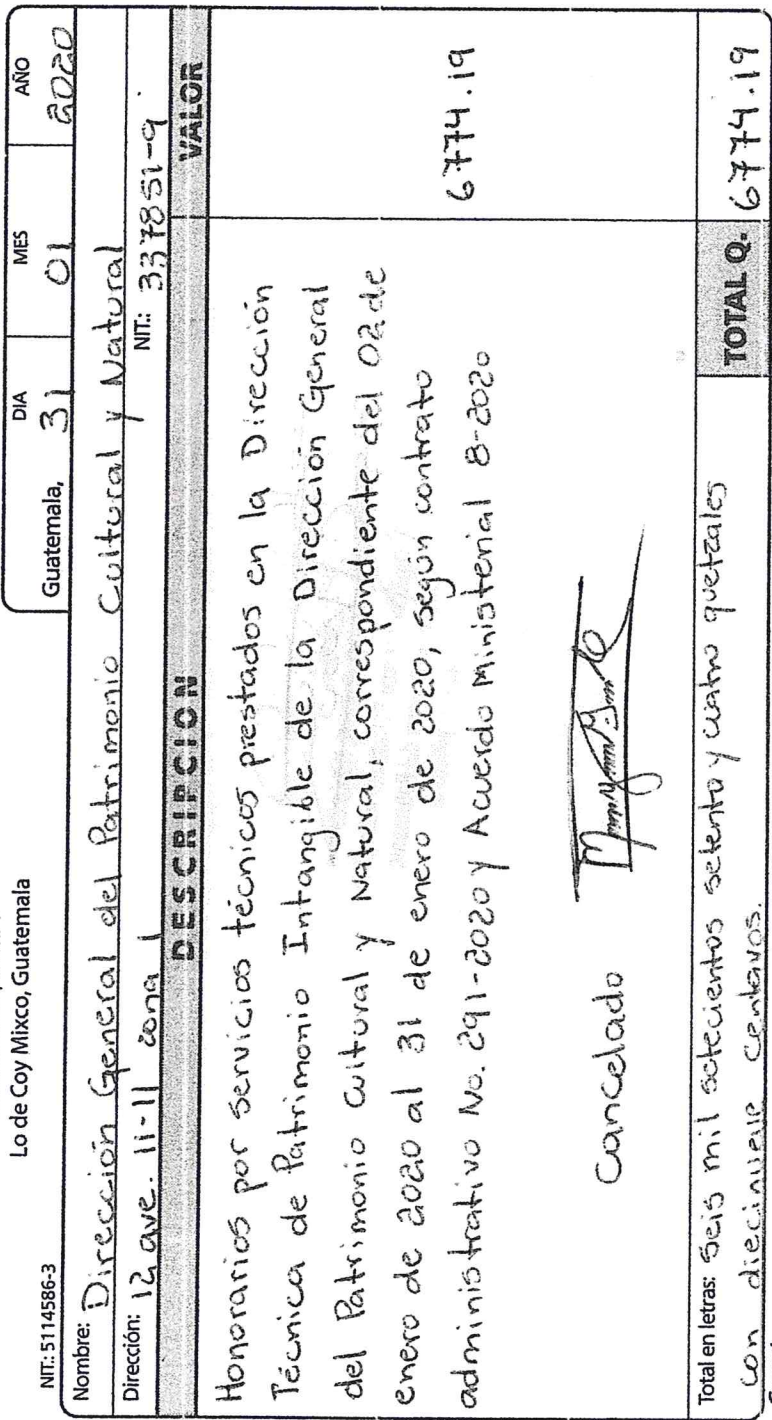 Lo de Coy Mixco, Guatemala
NIT.: 5114586-3
DIA MES AÑO
Guatemala, 31 01 2020
Nombre: Dirección General del Patrimonio Cultural y Natural
Dirección: 12 ave. 11-11 zona 1 NIT.: 337851-9
DESCRIPCION VALOR
Honorarios por servicios técnicos prestados en la Dirección
Técnica de Patrimonio Intangible de la Dirección General
del Patrimonio Cultural y Natural, correspondiente del 02 de
enero de 2020 al 31 de enero de 2020, según contrato
administrativo No. 291-2020 y Acuerdo Ministerial 8-2020
6774.19
Cancelado
Total en letras: Seis mil setecientos setenta y cuatro quetzales
con diecinueve centavos.
TOTAL Q. 6774.19